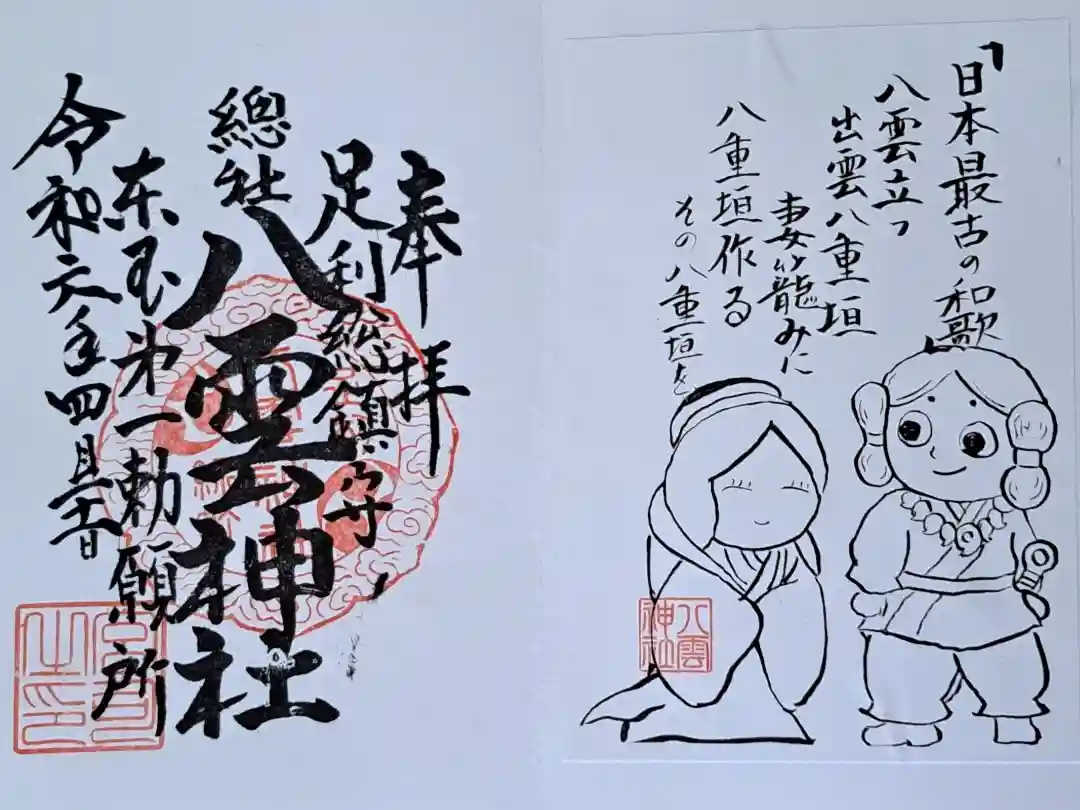 「日本最古の和歌
八雲立つ
出雲八重垣
妻籠みに
八重垣作る
その八重垣を
八雲
神社
奉拝
足利総鎮守
總社
八雲神社
東国第一勅願所
令和六年四月